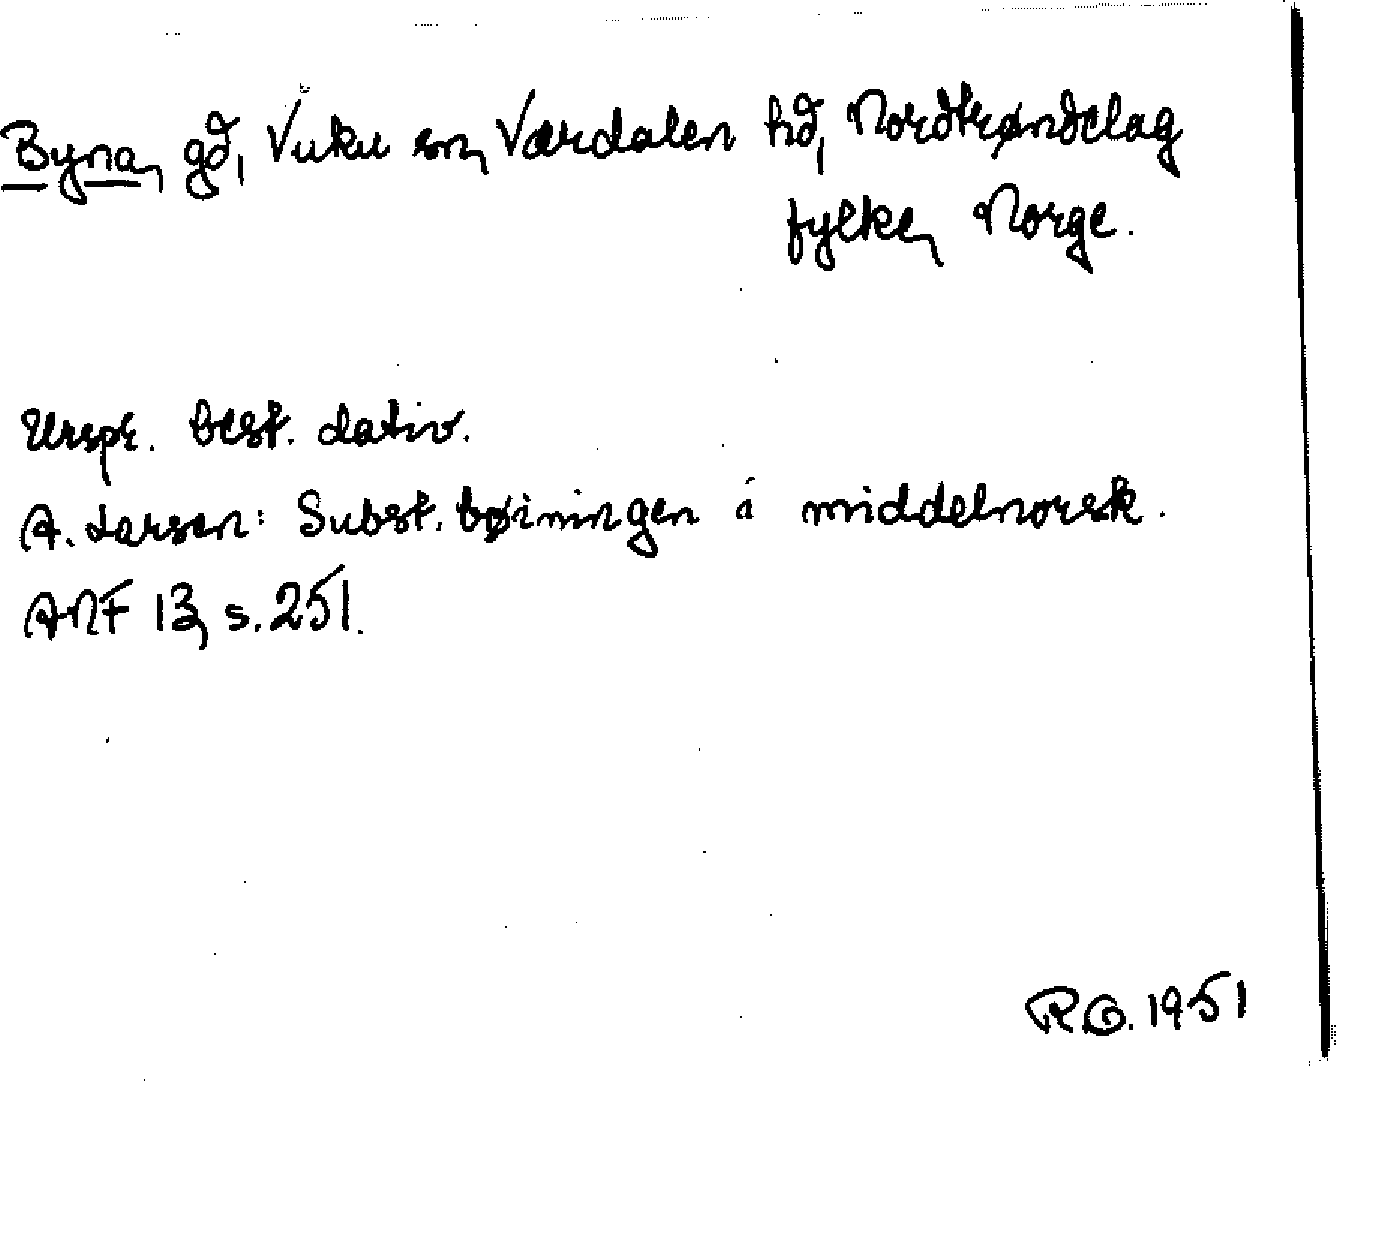 Byna, gd, Vuku sn, Værdalen hd, Nordtrøndelag
fylke, Norge.
Urspr. best. dativ.
A. Larsen: Subst. bøiningen i middelnorsk.
ANF 13, s. 251.
RO. 1951